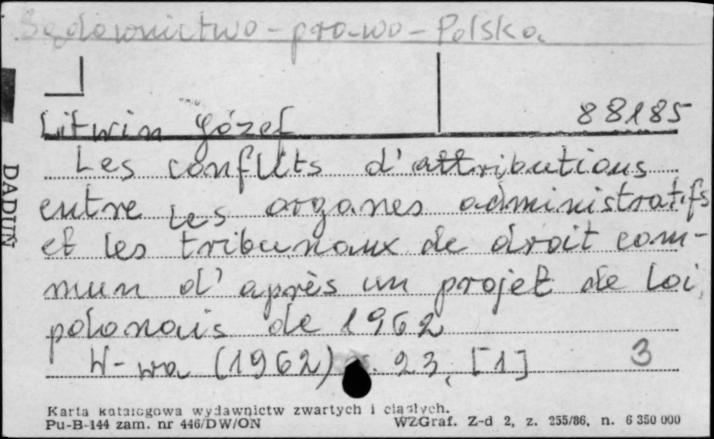 Sądownictwo - prawo - Polska
88185
Litwin Józef
Les conflits d'attributions
entre les organes administratifs
et les tribunaux de droit com-
mun d'après un projet de loi
polonais de 1962
W-wa (1962) s. 23, [1] 3
DADUŃ
Karta katalogowa wydawnictw zwartych i ciągłych.
Pu-B-144 zam. nr 446/DW/ON WZGraf. Z-d 2, z. 255/86, n. 6 350 000